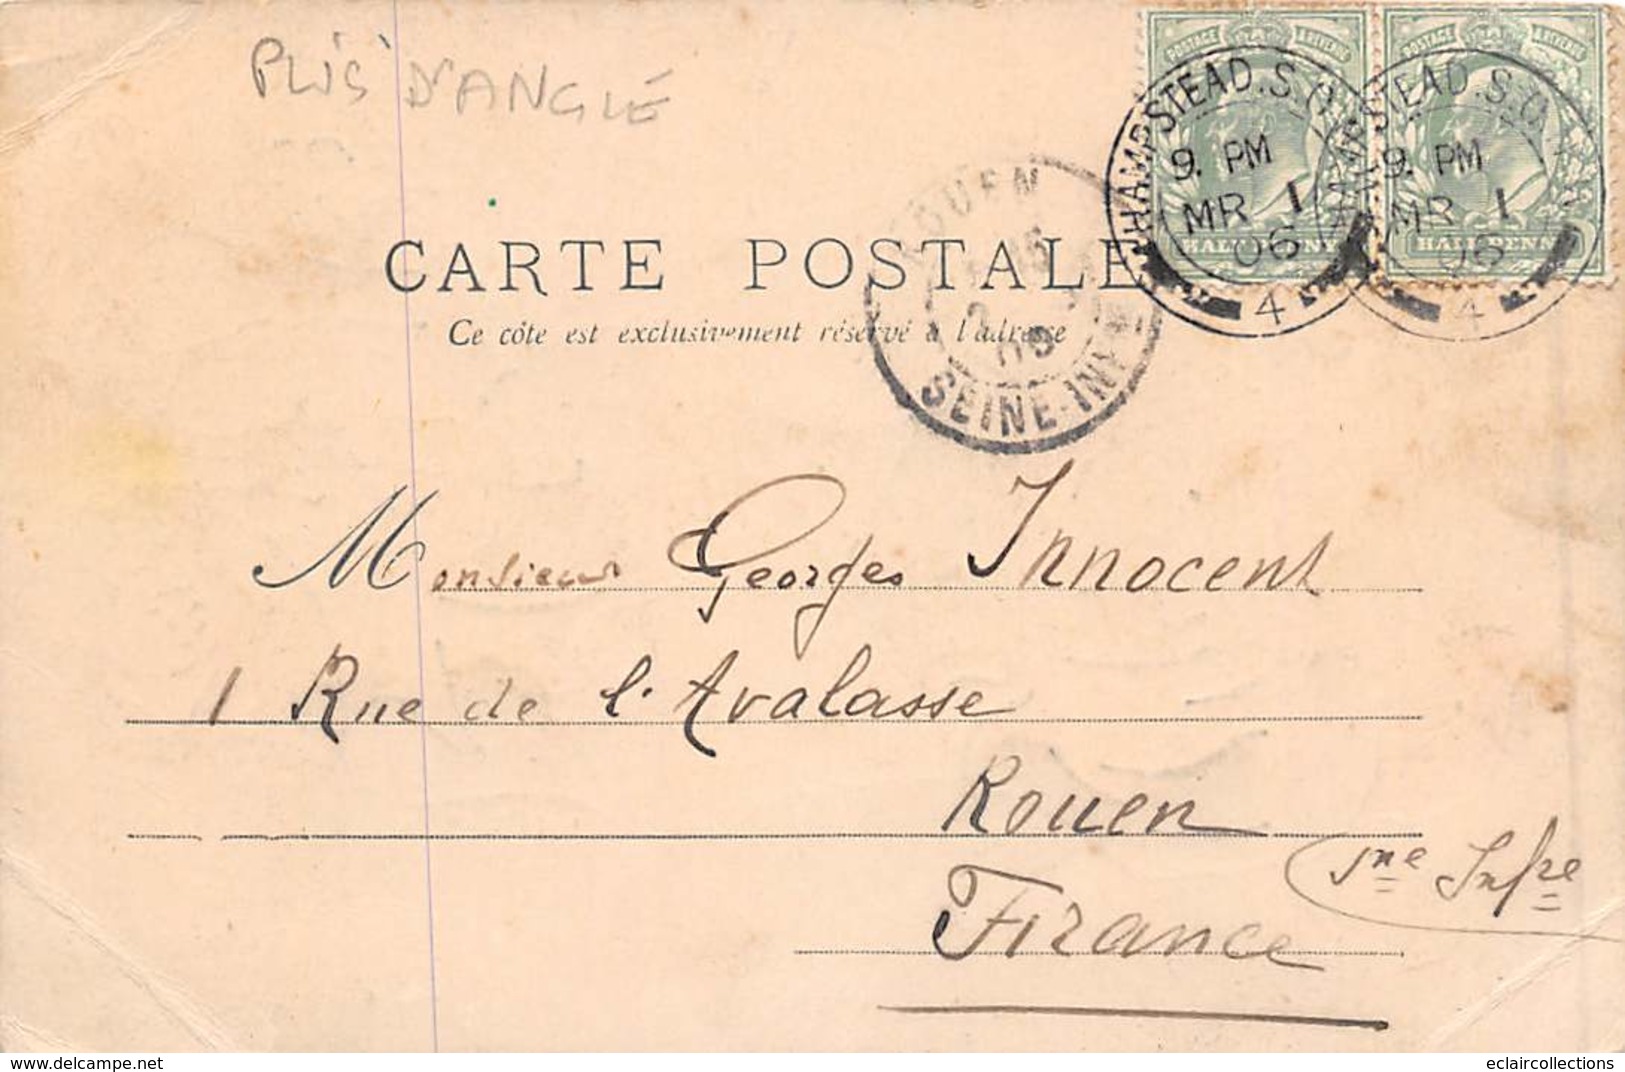 PLIS D'ANGLE
POSTAGE & REVENUE
POSTAGE & REVENUE
HAMPSTEAD. S.O.
9. PM
MR 1
06
4
HAMPSTEAD. S.O.
9. PM
MR 1
06
4
HALFPENNY
HALFPENNY
ROUEN
2
06
SEINE-INFRE
CARTE POSTALE
Ce côte est exclusivement réservé à l'adresse
Monsieur Georges Innocent
1 Rue de l'Avalasse
Rouen
Sne Infre
France
delcampe.net
eclaircollections